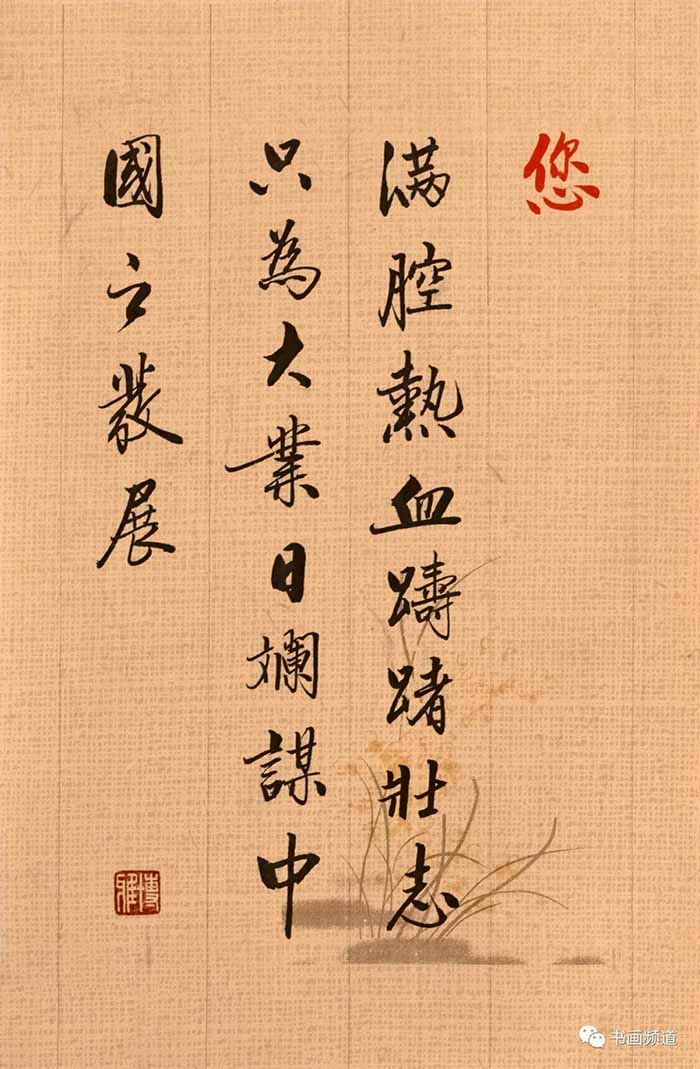 您
滿腔熱血躊躇壯志
只為大業日斕謀中
國之發展
博雅
书画频道